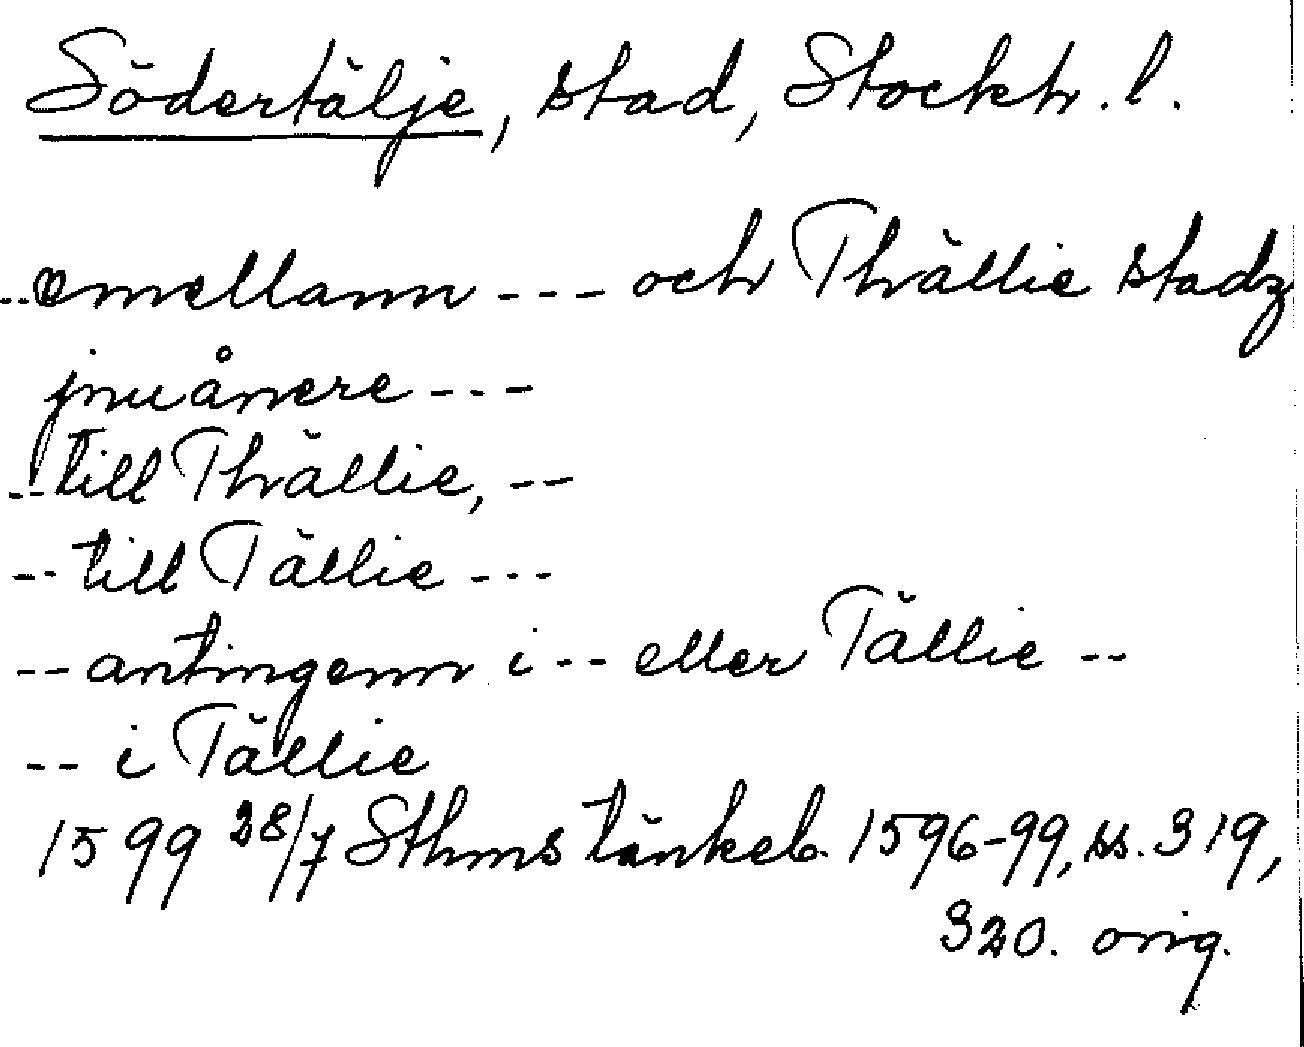 Södertälje, stad, Stockh. l.
--emellann --- och Thällie stadz
jnuånere ---
--till Thällie, --
-- till Tällie ---
-- antingenn i -- eller Tällie --
-- i Tällie
1599 28/7 Sthms tänkeb. 1596-99, ss. 319,
320. orig.